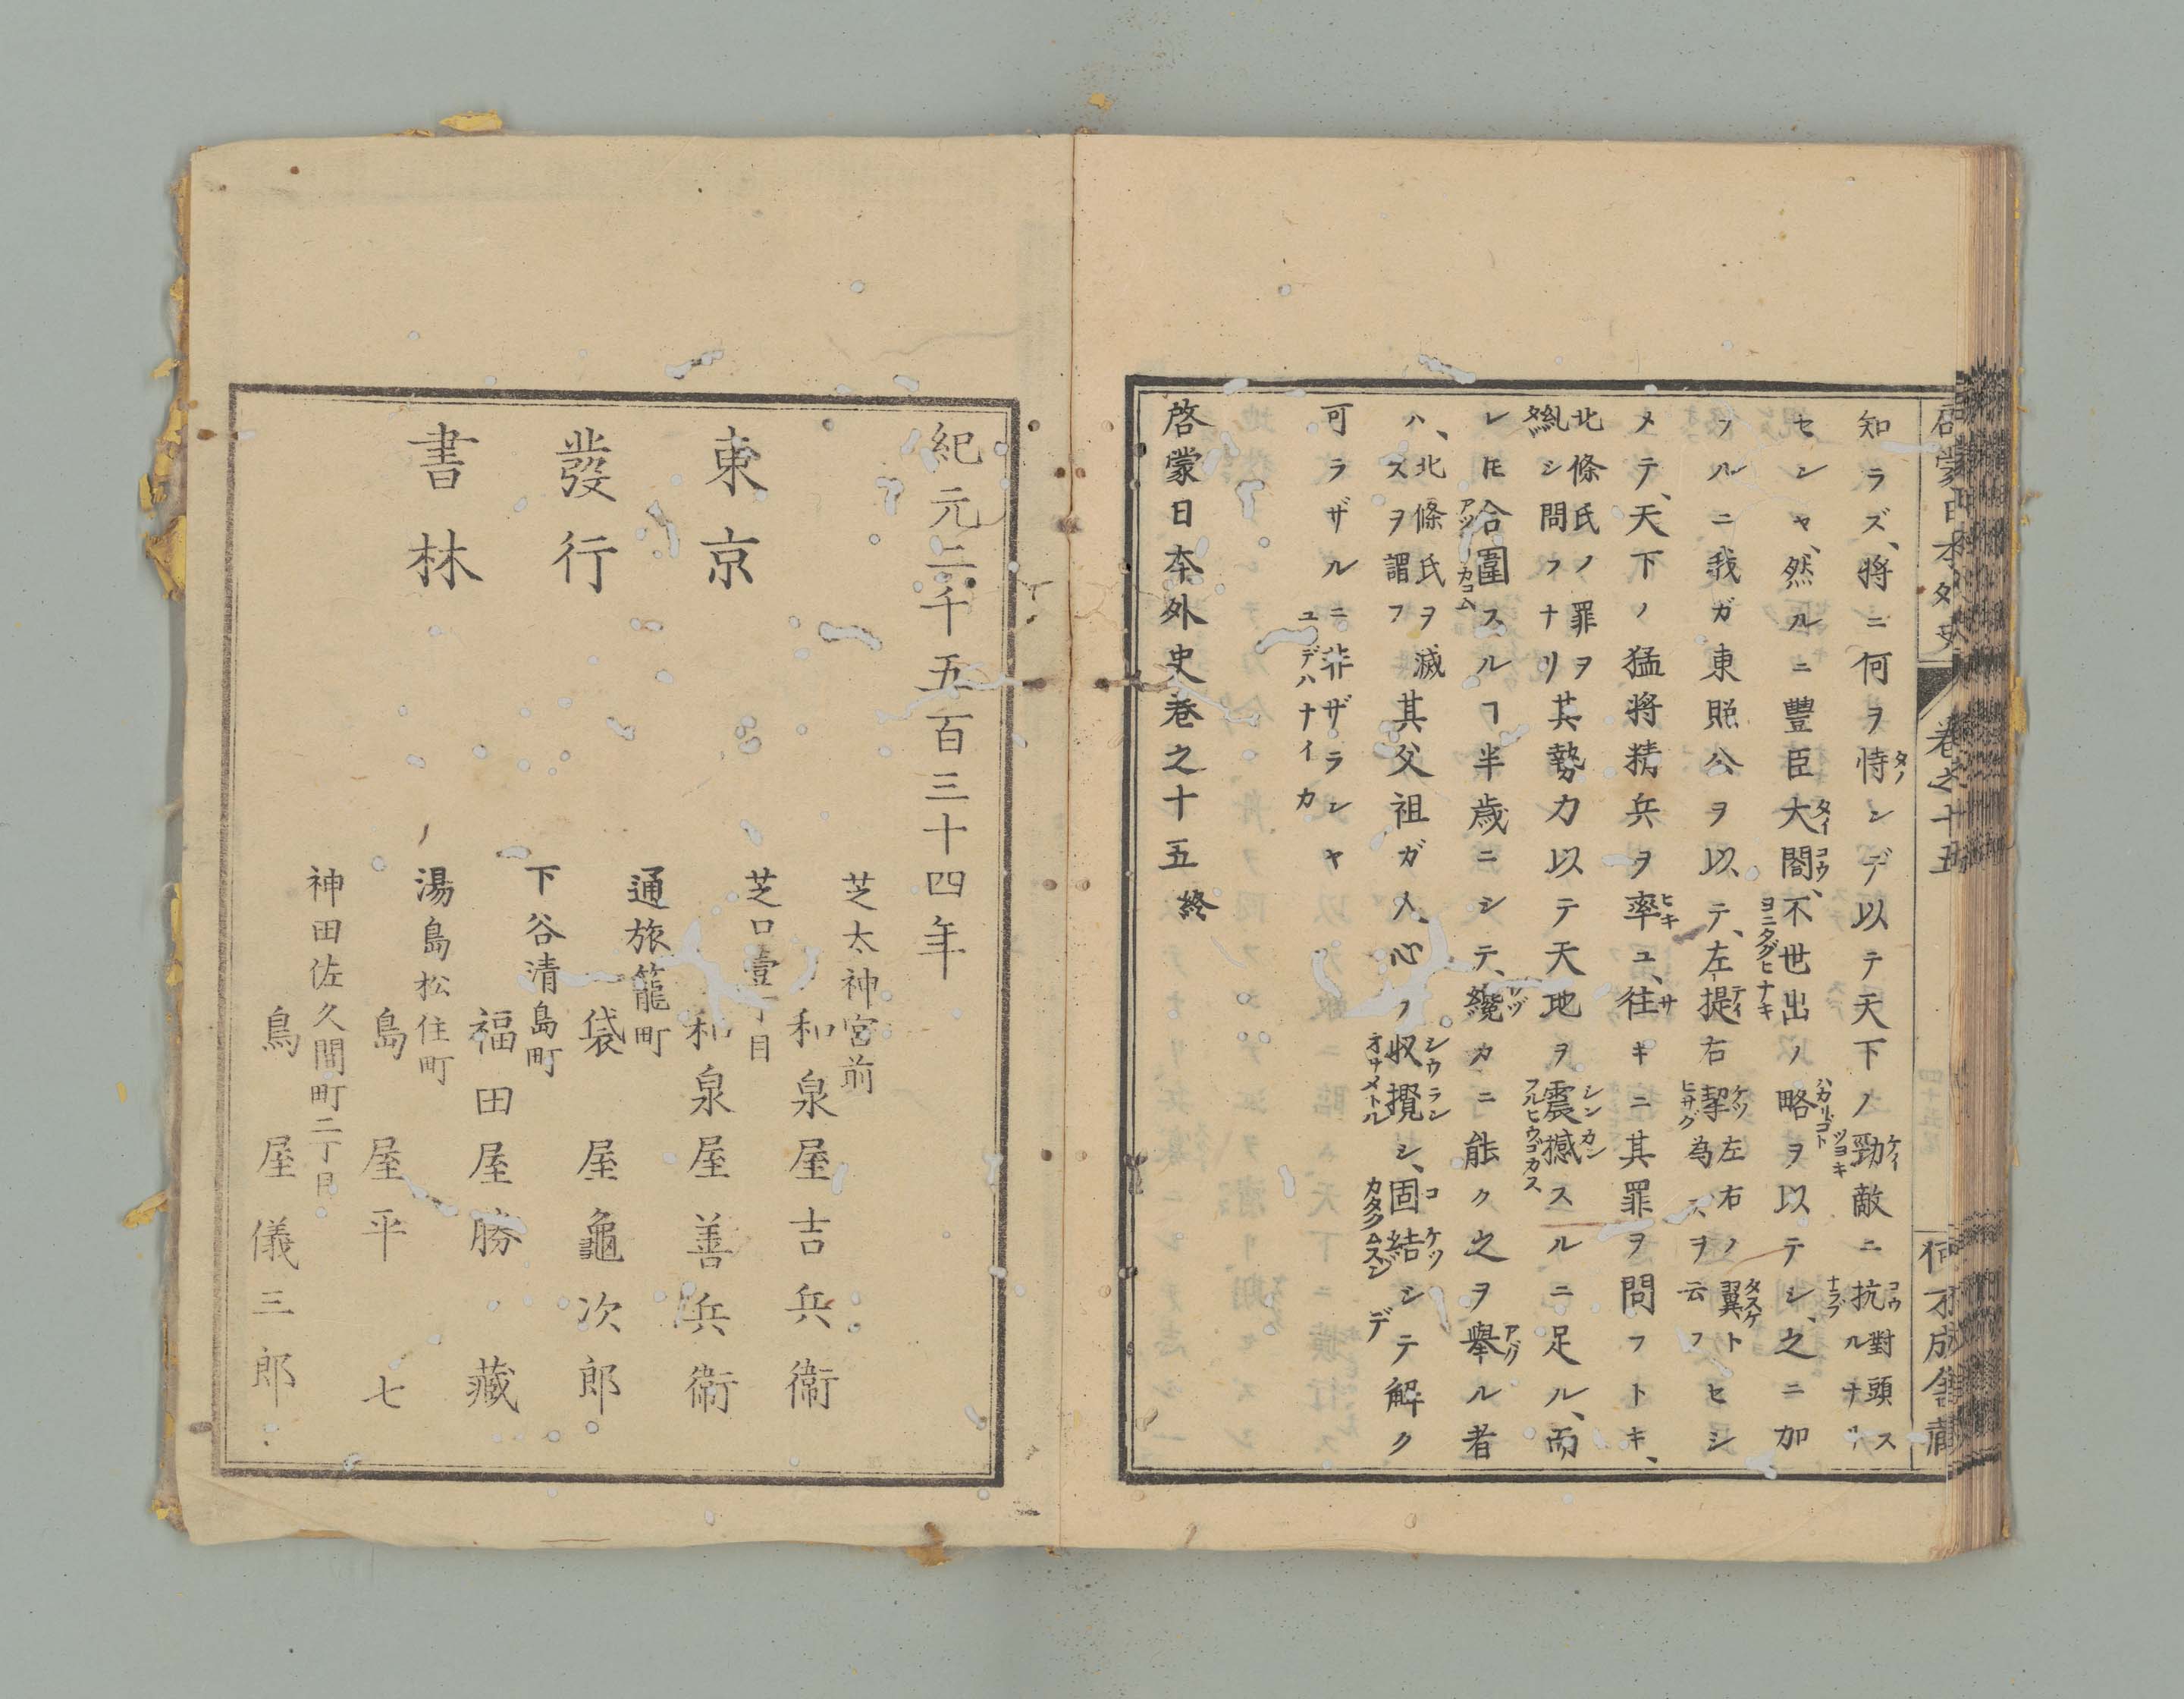 啓蒙日本外史 卷之十五
知ラズ、將ニ何ヲ恃ンデ以テ天下ノ勁敵ニ抗ル對頭ス
センヤ、然ルニ豐臣大閤、不世出ノ略ヲ以テシ、之ニ加
フルニ、我ガ東照公ヲ以テ、左提右挈左右ノ翼トヒシ為スヲ云フ
メテ、天下ノ猛將精兵ヲ率ユ、往キニ其罪ヲ問フトキ、
北條氏ノ罪ヲ糺シ問フナリ其勢力以テ天地ヲ震撼スルニ足ル、而
レ𪜈合圍スルヿ半歳ニシテ、纔カニ能ク之ヲ舉ル者
ハ、北條氏ヲ滅スヲ謂フ其父祖ガ人心ノ収攬シ、固結シテ解ク
可ラザルニ非ザランヤ
ユデハナイカ
啓蒙日本外史卷之十五 終
紀元二千五百三十四年
東京
發行
書林
芝太神宮前
和泉屋吉兵衞
芝口壹丁目
和泉屋善兵衞
通旅籠町
袋屋龜次郎
下谷清島町
福田屋勝藏
湯島松住町
島屋平七
神田佐久間町二丁目
鳥屋儀三郎